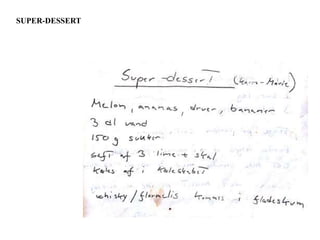 SUPER-DESSERT
Super-dessert (Karin-Marie)
Melon, ananas, druer, bananer
3 dl vand
150 g sukker
saft af 3 lime + skal
Køles af i køleskabet
whisky / flormelis kommes i flødeskum